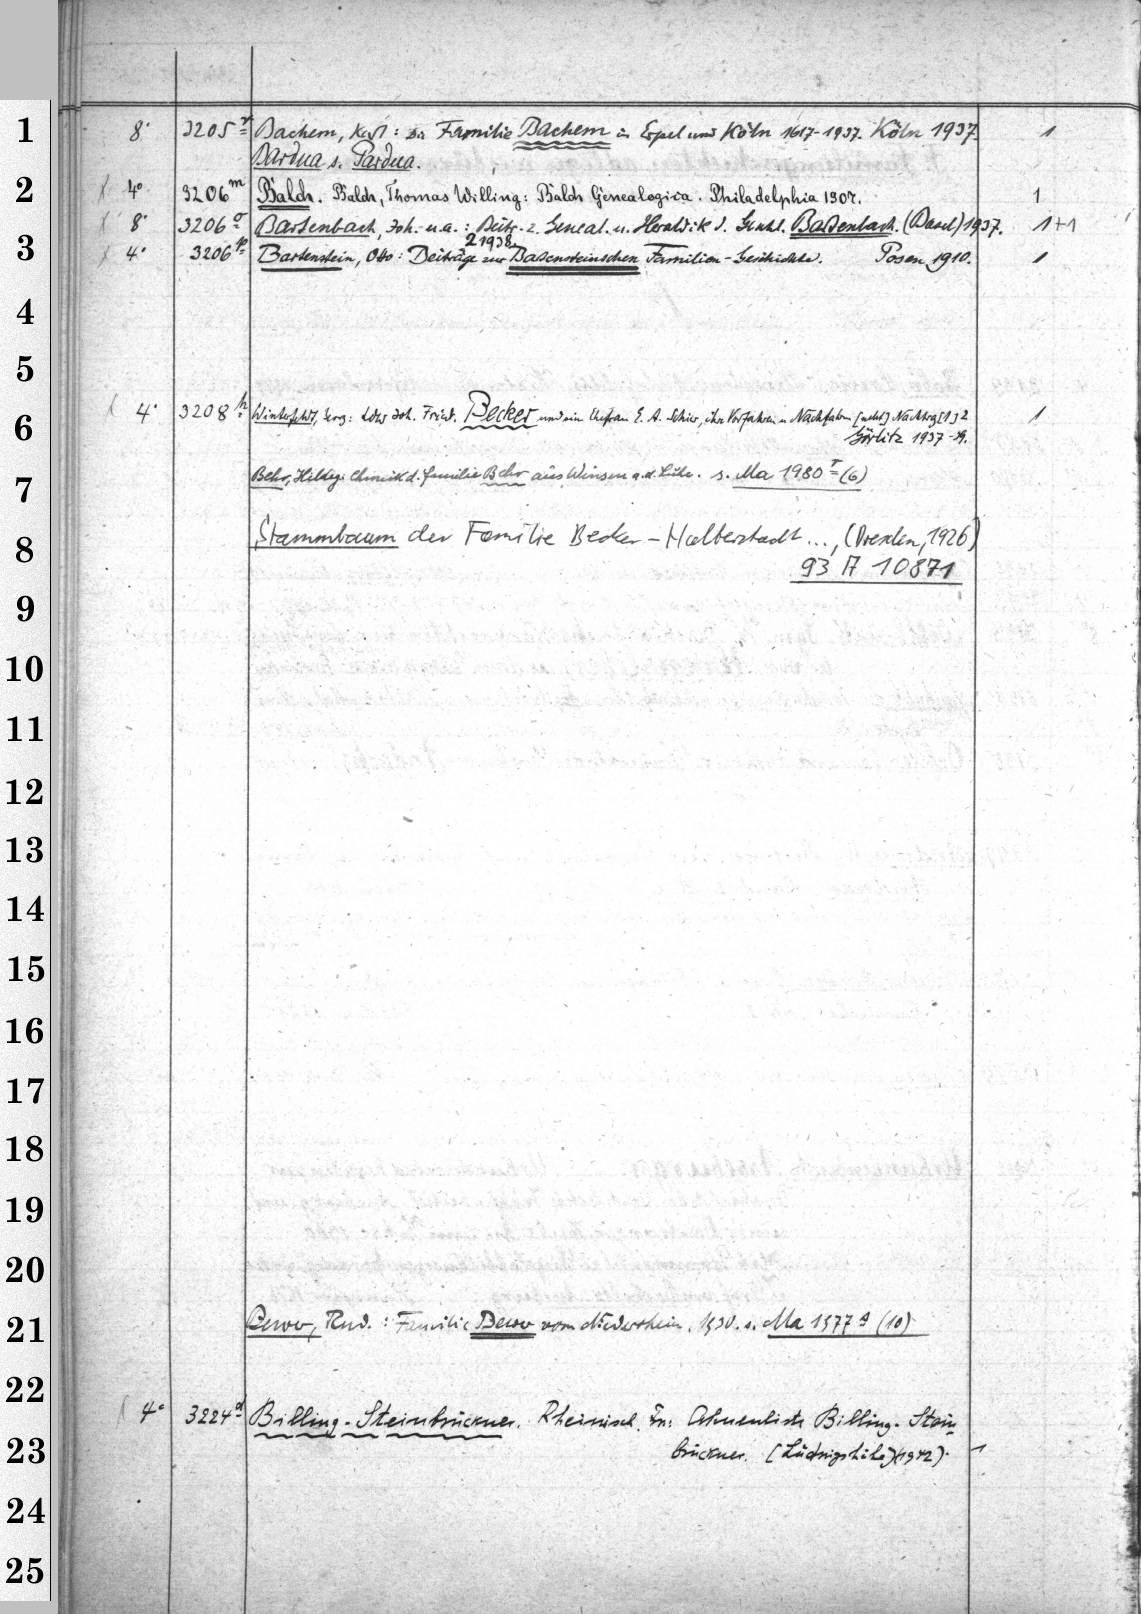 1
8° 3205 r Bachem, Karl: Die Familie Bachem in Erpel und Köln 1617-1937. Köln 1937 1
Bardua s. Pardua.
2
4° 3206 m Balch. Balch, Thomas Willing: Balch Genealogica. Philadelphia 1907. 1
8° 3206 o Bartenbach, Joh. u.a.: Beitr. z. Geneal. u. Heraldik d. (Basel) 1937. 1+1
2 1938
3
4° 3206 p Bartenstein, Otto: Beiträge zur Familien-Geschichte. Posen 1910. 1
4
5
4° 3208 h Joh. Fried. Becker und sein Ehefrau E. A. Schier, ihre Vorfahren u. Nachfahren [nebst] Nachtrag [1] 2 1
6
Görlitz 1937-39.
7
Behr, Hildeg: Chronik d. Familie Behr aus Winsen a. d. Luhe. s. Ma 1980 r (6)
8
Stammbaum der Familie Becker-Halberstadt ..., (Dresden, 1926)
93 A 10871
9
10
11
12
13
14
15
16
17
18
19
20
21
Rud.: Familie vom Niederrhein. 1930. s. Ma 1377 (10)
22
4° 3224 d Billing-Steinbrückner. Rheinisch. Fn: Ahnenliste Billing-Stein-
23
brückner. [Ludwigshöhe] (1942). 1
24
25